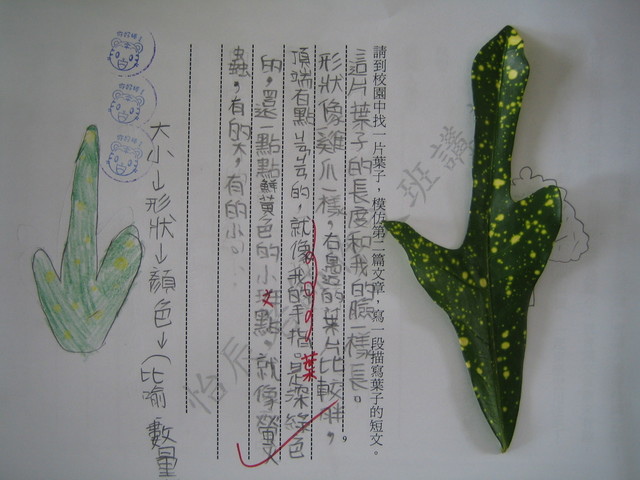 請到校園中找一片葉子，模仿第二篇文章，寫一段描寫葉子的短文。
這片葉子的長度和我的臉一樣長。
形狀像雞爪一樣，右邊的葉片比較胖，
頂端有點尖尖的，就像我的手指。葉是深綠色
的，還一點點鮮黃色的小斑點，就像螢火
蟲，有的大，有的小…
大小→形狀→顏色→(比喻 數量
你好棒！
你好棒！
你好棒！
怡辰 班讀